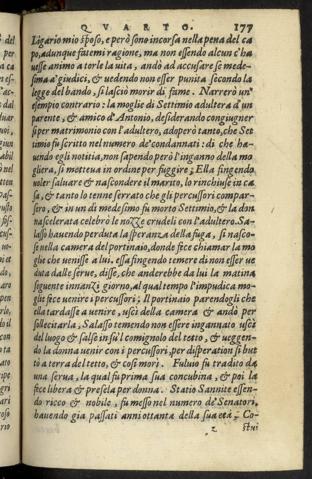 QVARTO. 177
Ligario mio sposo, e però sono incorsa nella pena del ca
po, adunque fatemi ragione, ma non essendo alcun c'ha
uesse animo a torle la uita, andò ad accusare se mede-
sima a'giudici, & uedendo non esser punita secondo la
legge del bando, si lasciò morir di fame. Narrerò un'
esempio contrario: la moglie di Settimio adultera d'un
parente, & amico d'Antonio, desiderando congiugner
si per matrimonio con l'adultero, adoperò tanto, che Set
timio fu scritto nel numero de'condannati: di che ha-
uendo egli notitia, non sapendo però l'inganno della mo
gliera, si metteua in ordine per fuggire; Ella fingendo
uoler saluare & nascondere il marito, lo rinchiuse in ca
sa, & tanto lo tenne serrato che gli percussori compar-
sero, & in un dì medesimo fu morto Settimio, & la don
na scelerata celebrò le nozze crudeli con l'adultero. Sa-
lasso hauendo perduta la speranza della fuga, si nasco-
se nella camera del portinaio, donde fece chiamar la mo
glie che uenisse a lui, essa fingendo temere di non esser ue
duta dalle serue, disse, che anderebbe da lui la matina
seguente innanzi giorno, al qual tempo l'impudica mo-
glie fece uenire i percussori; Il portinaio parendogli che
ella tardasse a uenire, uscì della camera & andò per
sollecitarla, Salasso temendo non essere ingannato uscì
del luogo & salse in su'l comignolo del tetto, & ueggen-
do la donna uenir con i percussori, per disperation si but
tò a terra del tetto, & così morì. Fuluio fu tradito da
una serua, la qual fu prima sua concubina, & poi la
fece libera & presela per donna. Statio Sannite essen-
do ricco & nobile, fu messo nel numero de'Senatori,
hauendo gia passati anni ottanta della sua età. Co-
z stui